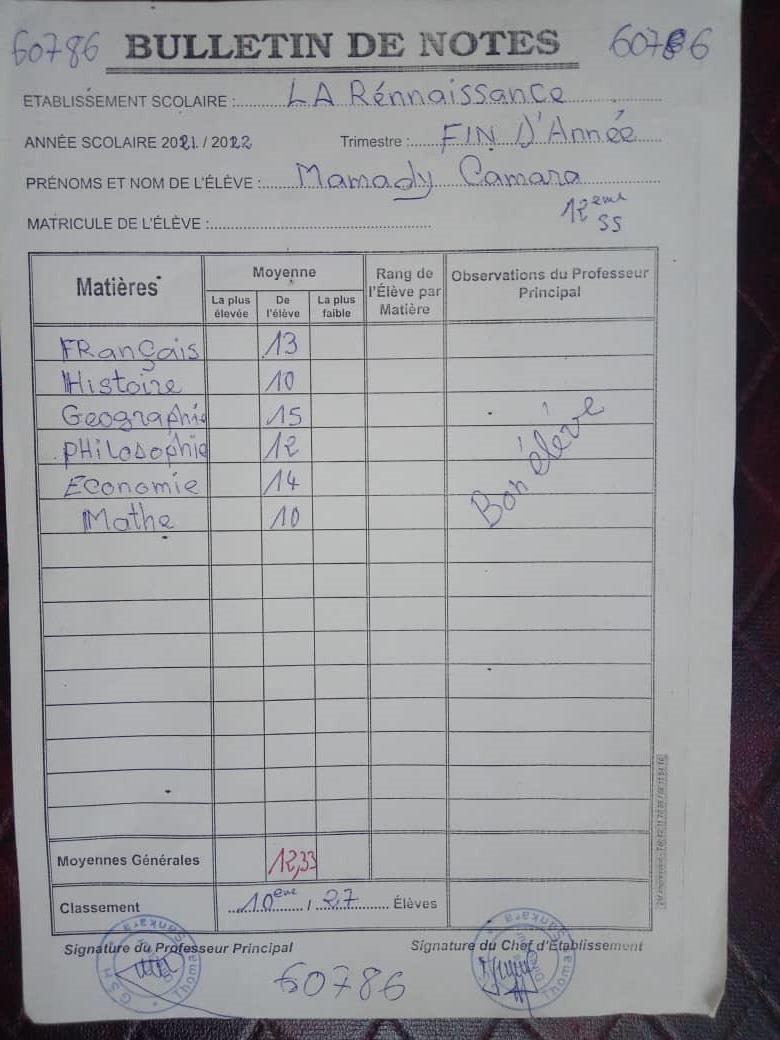 60786 BULLETIN DE NOTES 60786
ETABLISSEMENT SCOLAIRE : LA Rénnaissance
ANNÉE SCOLAIRE 2021 / 2022 Trimestre : FIN D'Année
PRÉNOMS ET NOM DE L'ÉLÈVE : Mamady Camara
12ème
SS
MATRICULE DE L'ÉLÈVE :
Matières Moyenne Rang de l'Élève par Matière Observations du Professeur Principal
La plus élevée De l'élève La plus faible
FRançais 13
Histoire 10
Geographie 15
PHilosophie 12
Economie 14
Mathe 10
Bon élève
Moyennes Générales 12,33
Classement 10ème / 27 Élèves
Signature du Professeur Principal Signature du Chef d'Établissement
60786